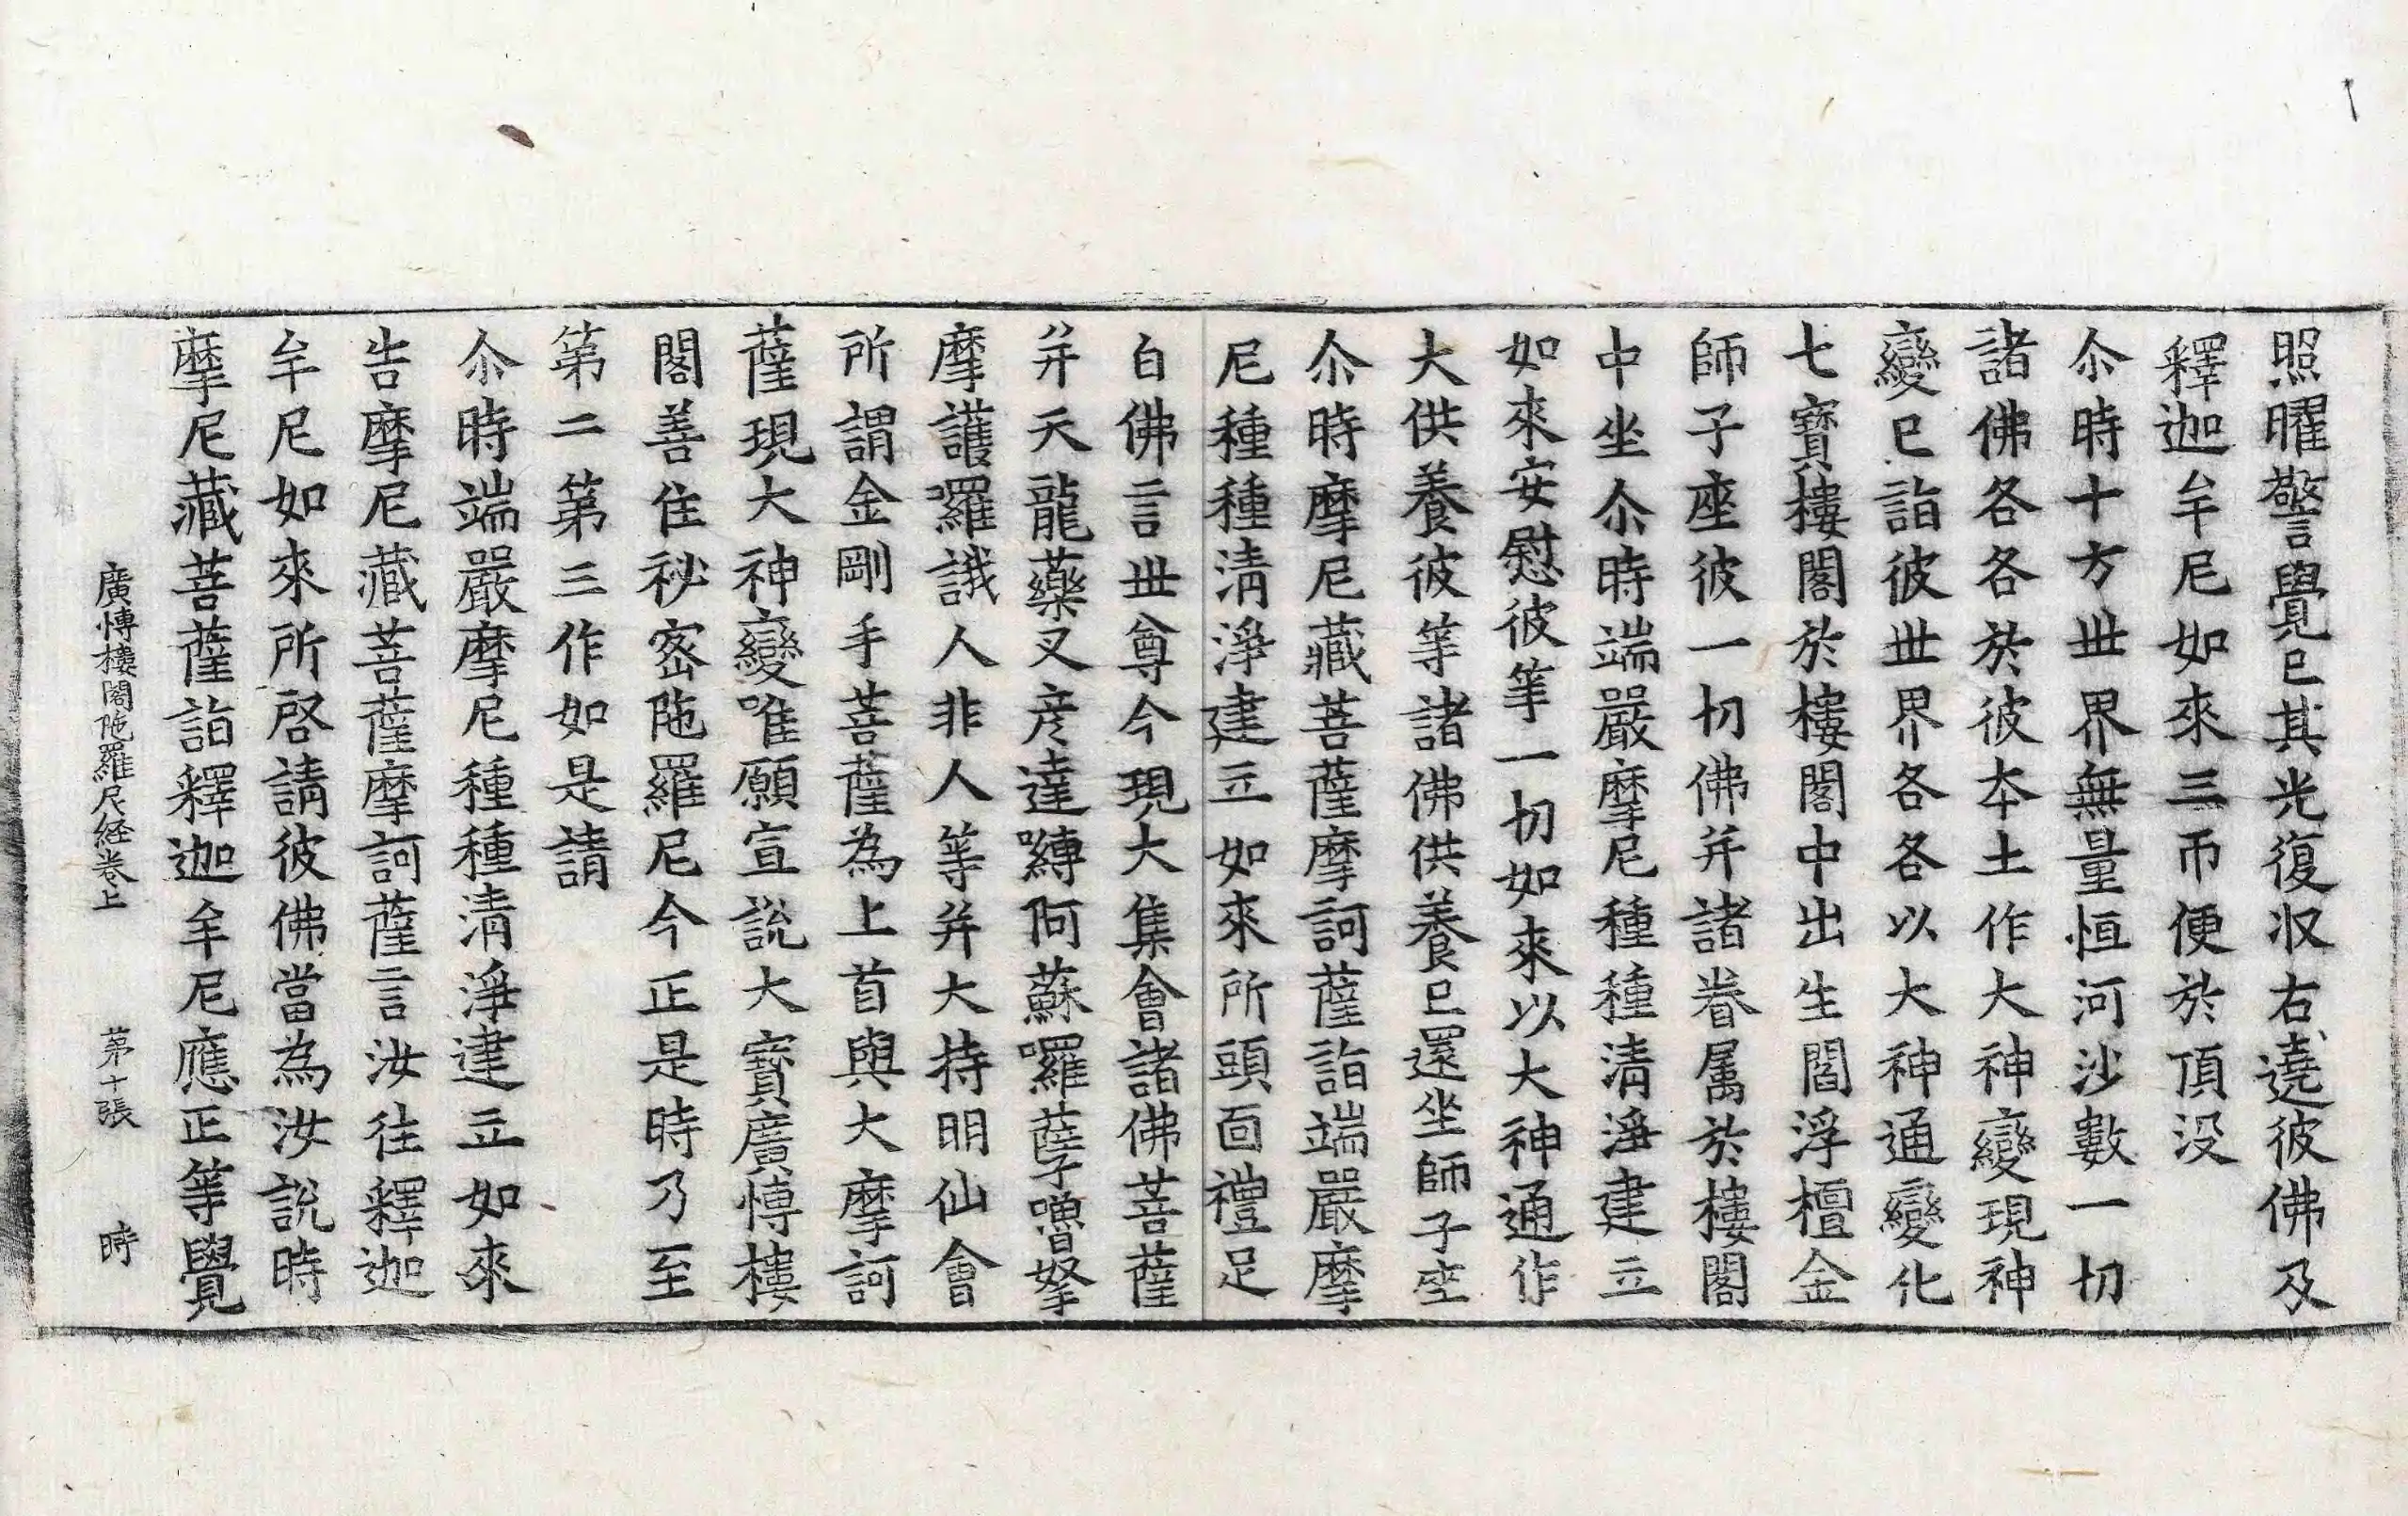 照曜警覺已其光復收右遶彼佛及
釋迦牟尼如來三帀便於頂没
尒時十方世界無量恒河沙數一切
諸佛各各於彼本土作大神變現神
變已詣彼世界各各以大神通變化
七寶樓閣於樓閣中出生閻浮檀金
師子座彼一切佛并諸眷属於樓閣
中坐尒時端嚴摩尼種種清淨建立
如來安慰彼等一切如來以大神通作
大供養彼等諸佛供養已還坐師子座
尒時摩尼藏菩薩摩訶薩詣端嚴摩
尼種種清淨建立如來所頭面禮足
白佛言世尊今現大集會諸佛菩薩
并天龍藥叉彦達嚩阿蘇囉孽嚕拏
摩護羅誐人非人等并大持明仙會
所謂金剛手菩薩為上首與大摩訶
薩現大神變唯願宣說大寶廣慱樓
閣善住祕密陁羅尼今正是時乃至
第二第三作如是請
尒時端嚴摩尼種種清淨建立如來
告摩尼藏菩薩摩訶薩言汝往釋迦
牟尼如來所啓請彼佛當為汝說時
摩尼藏菩薩詣釋迦牟尼應正等覺
廣慱樓閣陁羅尼経卷上 苐十張 時